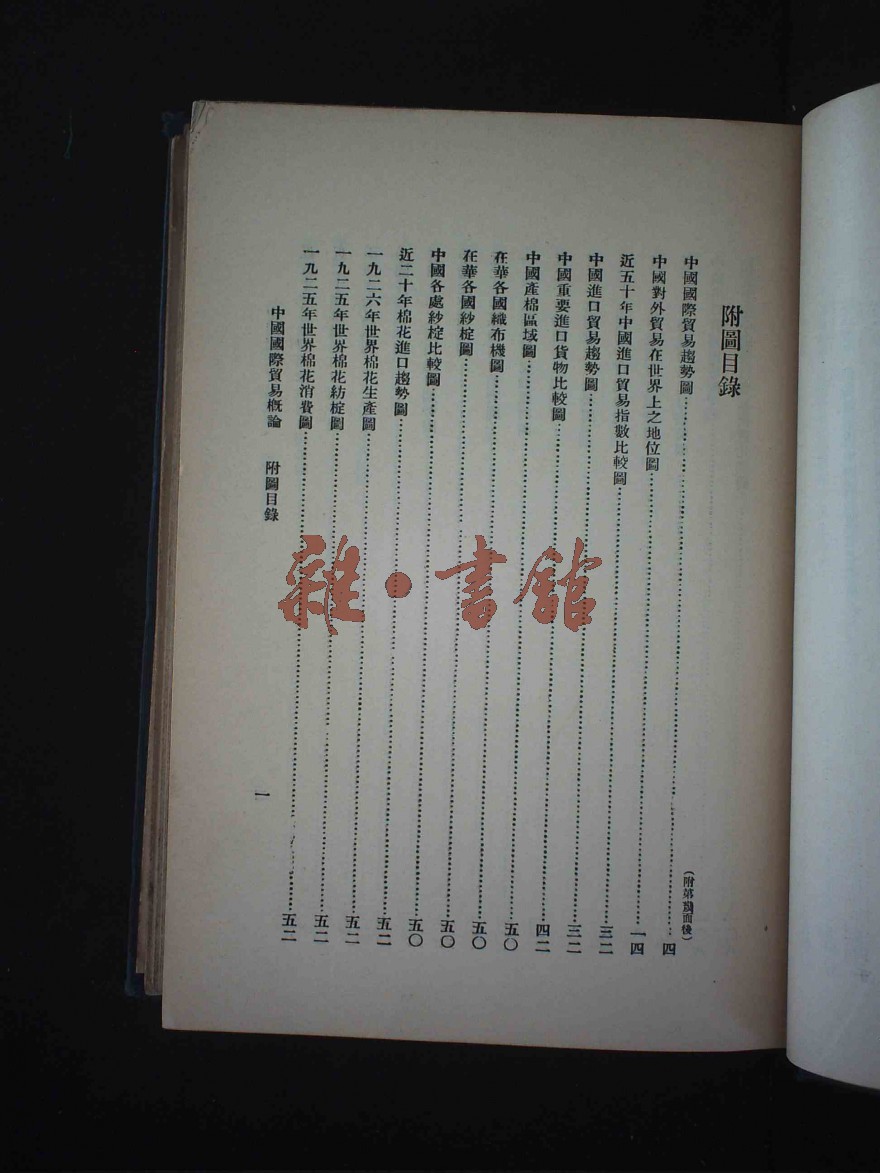 附圖目錄
（附第 面後）
中國國際貿易趨勢圖……四
中國對外貿易在世界上之地位圖……一四
近五十年中國進口貿易指數比較圖……三二
中國進口貿易趨勢圖……三二
中國重要進口貨物比較圖……四二
中國產棉區域圖……五〇
在華各國織布機圖……五〇
在華各國紗椗圖……五〇
中國各處紗椗比較圖……五〇
近二十年棉花進口趨勢圖……五二
一九二六年世界棉花生產圖……五二
一九二五年世界棉花紡椗圖……五二
一九二五年世界棉花消費圖……五二
中國國際貿易概論 附圖目錄 一
雜・書館